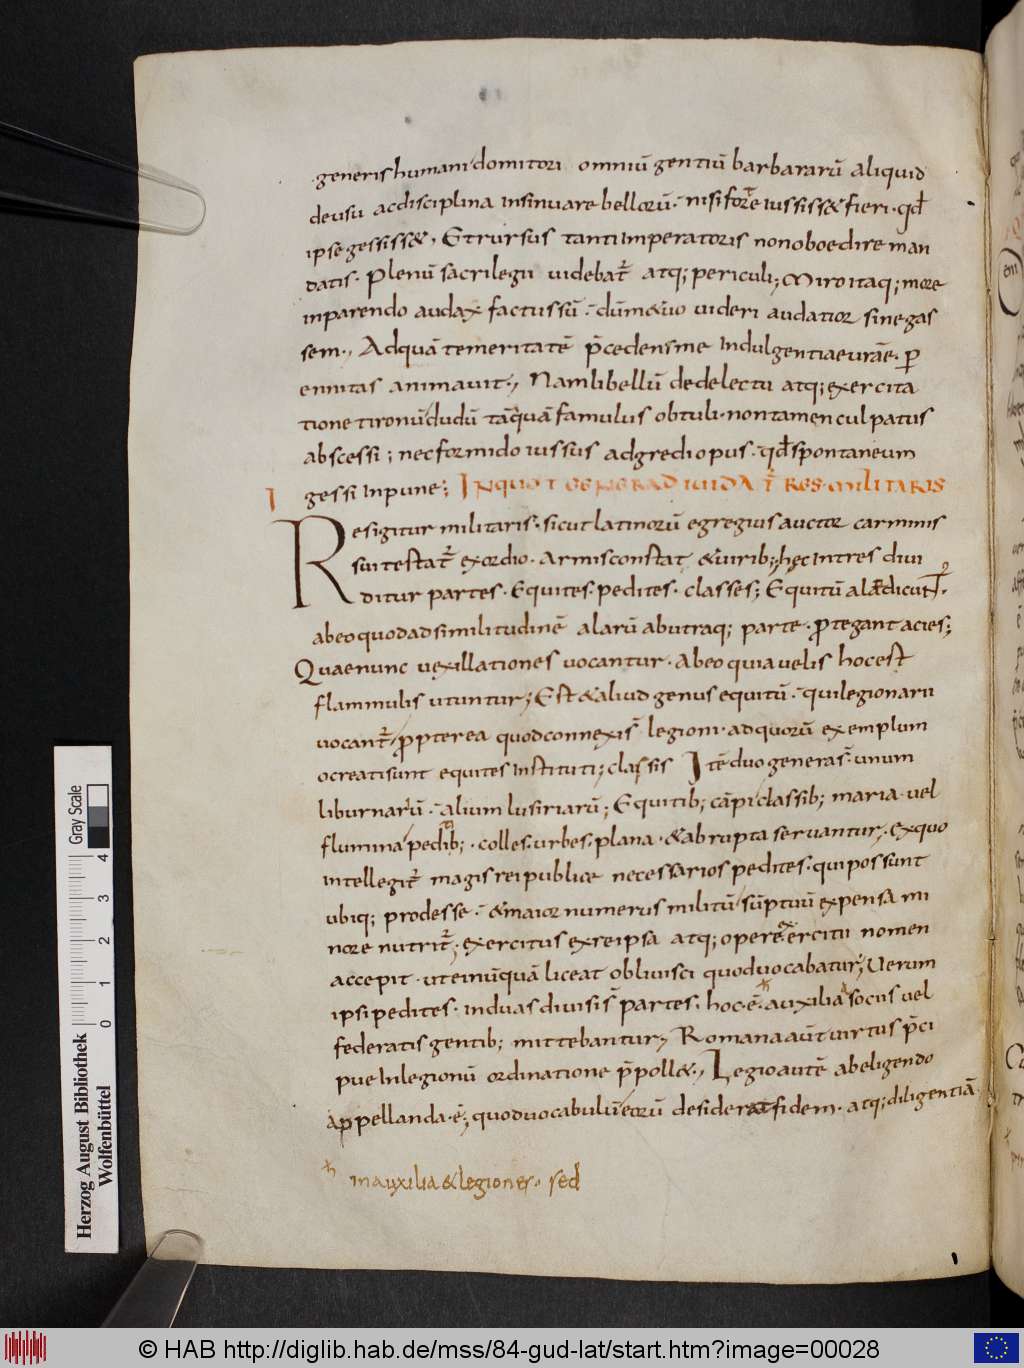 generis humani domitori omniū gentiū barbararū aliquid
de usu ac disciplina insinuare bellorū. nisi fortē iussiss& fieri. qđ
ipse gessiss&, Et rursus tanti imperatoris non oboedire man
datis. Plenū sacrilegii uidebat̄ atq; periculi; Miro itaq; more
in parendo audax factus sū. dū m&uo uideri audatior si negas
sem., Ad quā temeritatē p̄cedens me indulgentiae urāe. ꝑ
ennitas animauit., Nam libellū de delectu atq; exercita
tione tironū dudū tāquā famulus obtuli. non tamen culpatus
abscessi; nec formido iussus adgredi opus. qđ spontaneum
gessi inpune; In quot genera diuidat̄ res militaris
I
Res igitur militaris. sicut latinorū egregius auctor carminis
sui testat̄ exordio. Armis constat & uirib; hęc in tres diui
ditur partes. Equites. pedites. classes; Equitū alae dicunt̄.
ab eo quod ad similitudinē alarū ab utraq; parte. ꝓtegant acies;
Quae nunc uexillationes uocantur. Ab eo quia uelis hoc est
flammulis utuntur; Est & aliud genus equitū. qui legionarii
uocant̄ propterea quod connexi s̄ legioni. ad quorū exemplum
ocreati sunt equites instituti; classis Itē duo genera s̄. unum
liburnarū. alium lusiriarū; Equitib; cāpi classib; maria. uel
flumina peditib;. colles. urbes. plana. & abrupta seruantur. Ex quo
intellegit̄ magis rei publice necessarios pedites. qui possunt
ubiq; prodesse. & maior numerus militū sūptu ū expensa mi
nore nutrit̄. exercitus ex re ipsa atq; opere exercitii nomen
accepit. ut ei nūquā liceat obliuisci quod uocabatur; Uerum
ipsi pedites. in duas diuisi s̄ partes. hoc. ē. auxilia a sociis uel
federatis gentib; mittebantur, Romana aūt uirtus p̄ci
pue in legionū ordinatione p̄poll&., Legio autē ab eligendo
appellanda. ē; quod uocabulū eorū desiderat fidem. atq; diligentiā.
in auxilia & legiones. sed
Herzog August Bibliothek
Wolfenbüttel
0 1 2 3 4
Gray Scale
© HAB http://diglib.hab.de/mss/84-gud-lat/start.htm?image=00028